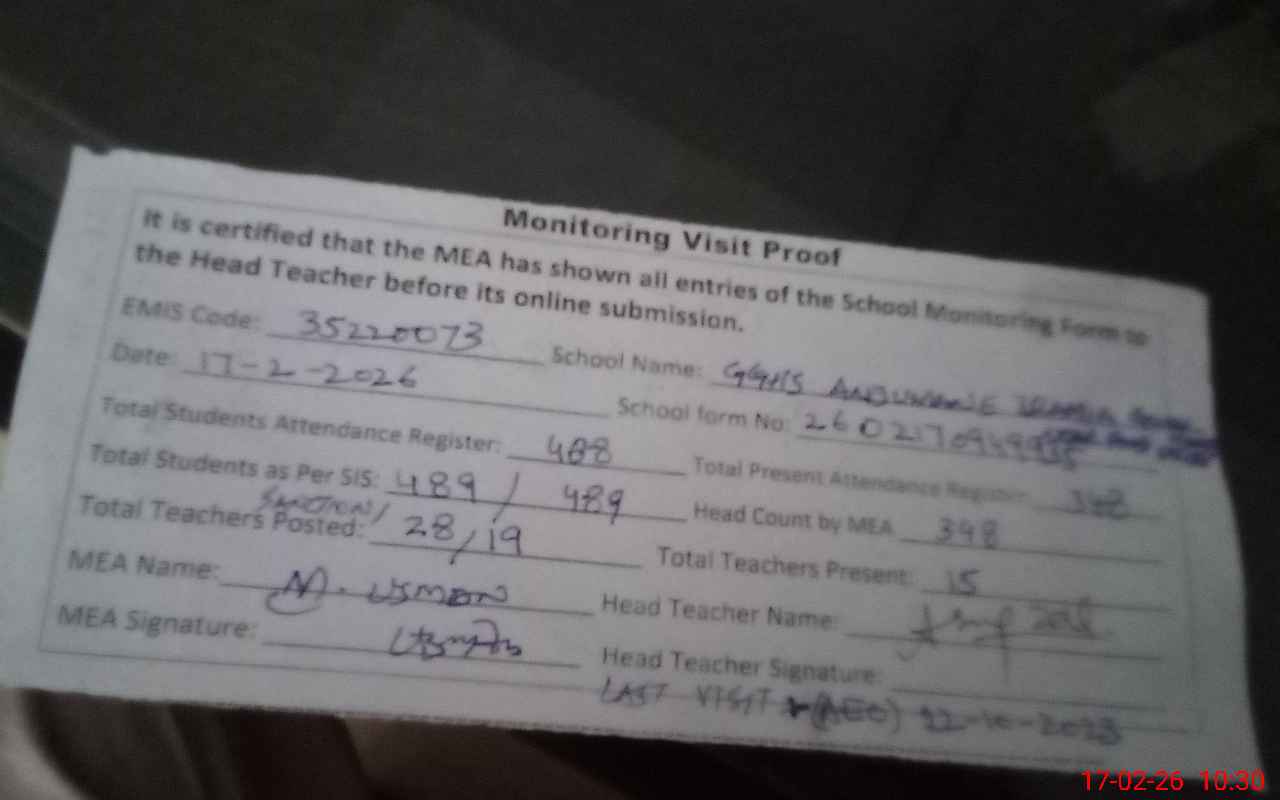 Monitoring Visit Proof
It is certified that the MEA has shown all entries of the School Monitoring Form to
the Head Teacher before its online submission.
EMIS Code: 35220073 School Name: GGHS
Date: 17-2-2026 School form No:
Total Students Attendance Register: 488 Total Present Attendance Register:
Total Students as Per SIS: 489 / 489 Head Count by MEA 398
SANCTION/
Total Teachers Posted: 28/19 Total Teachers Present: 15
MEA Name: M. USMAN Head Teacher Name:
MEA Signature: Head Teacher Signature:
LAST VISIT (AEO)
17-02-26 10:30